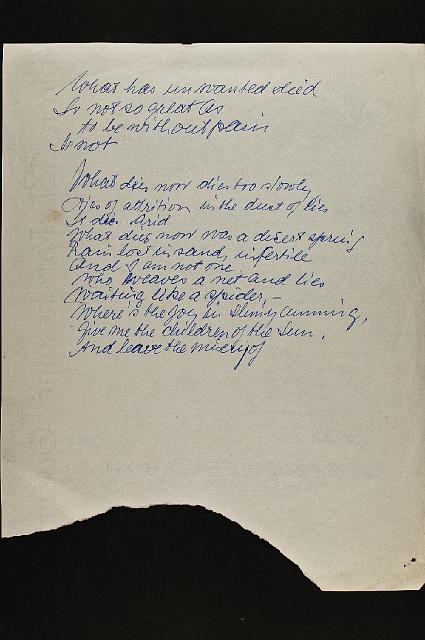 What has unwanted died
Is not so great as
to be without pain
Is not
What dies now dies too slowly
Dies of attrition in the dust of lies
It dies Arid
What dies now was a desert spring
Rain lost in sand, infertile
And I am not one
Who weaves a net and lies
Waiting like a spider, –
Where is the joy in slimy cunning,
Give me the children of the sun,
And leave the of